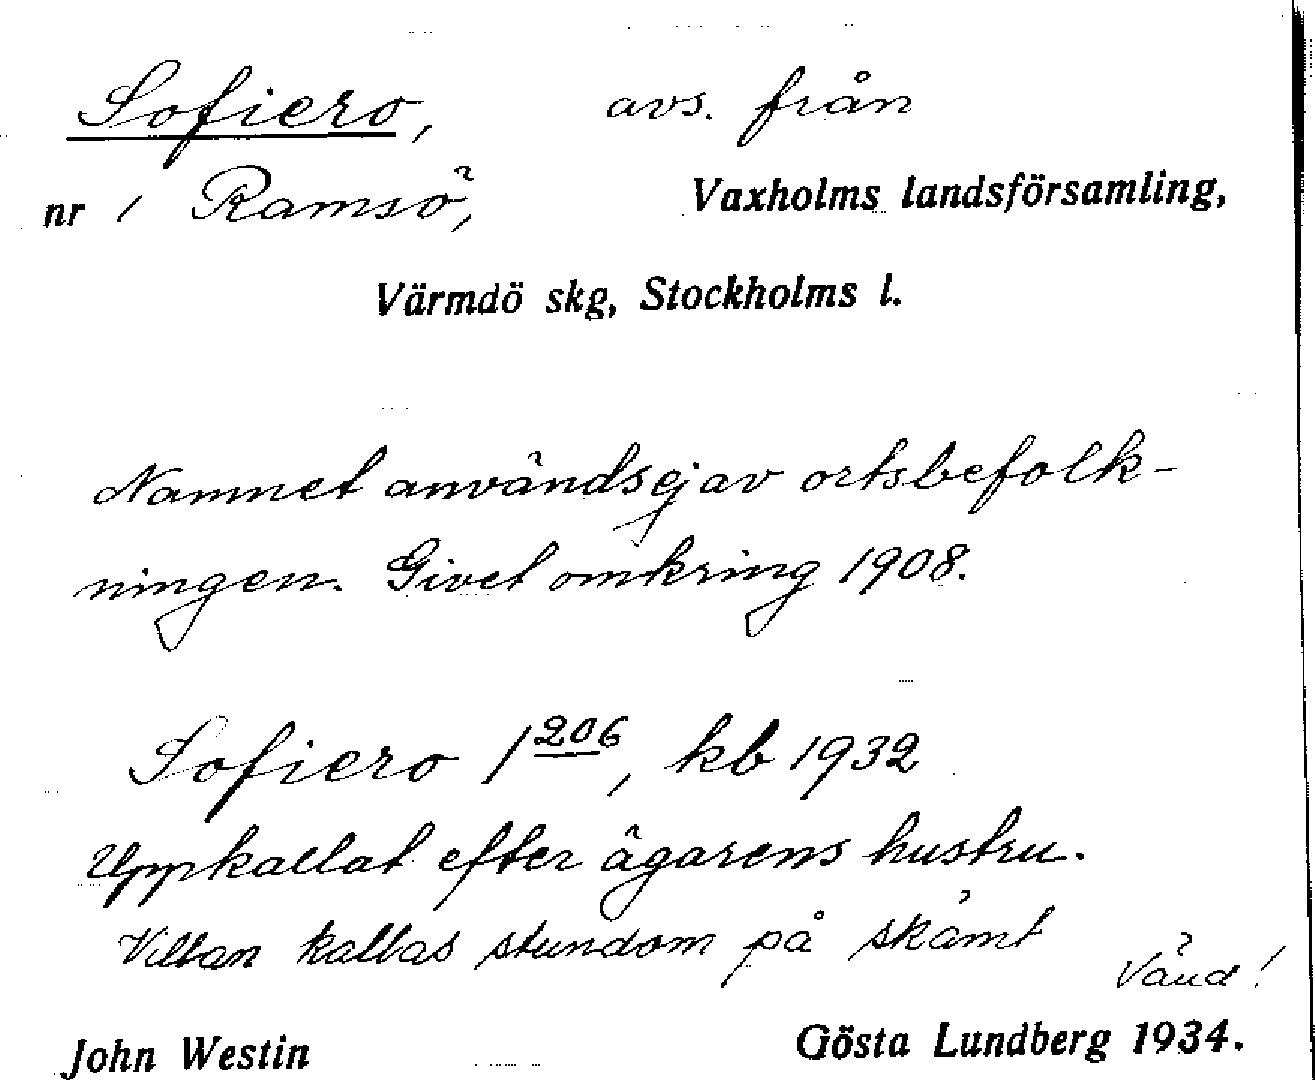 Sofiero, avs. från
nr 1 Ramsö, Vaxholms landsförsamling,
Värmdö skg, Stockholms l.
Namnet användsej av ortsbefolk-
ningen. Givet omkring 1908.
Sofiero 1 206, kb 1932
Uppkallat efter ägarens hustru.
Villan kallas stundom på skämt
Vänd!
John Westin Gösta Lundberg 1934.